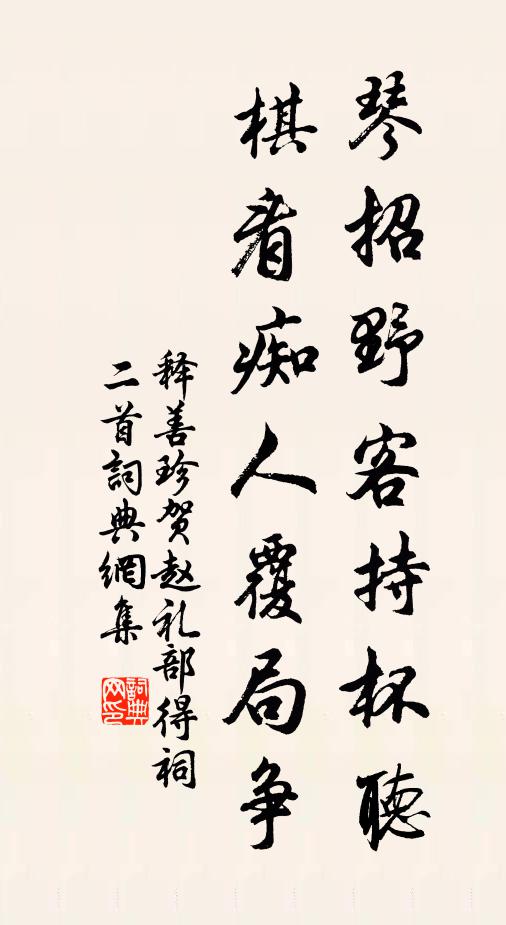 琴招野客持杯聽
棋看痴人覆局争
释善珍贺赵礼部得祠
二首詞典網集
詞典网印